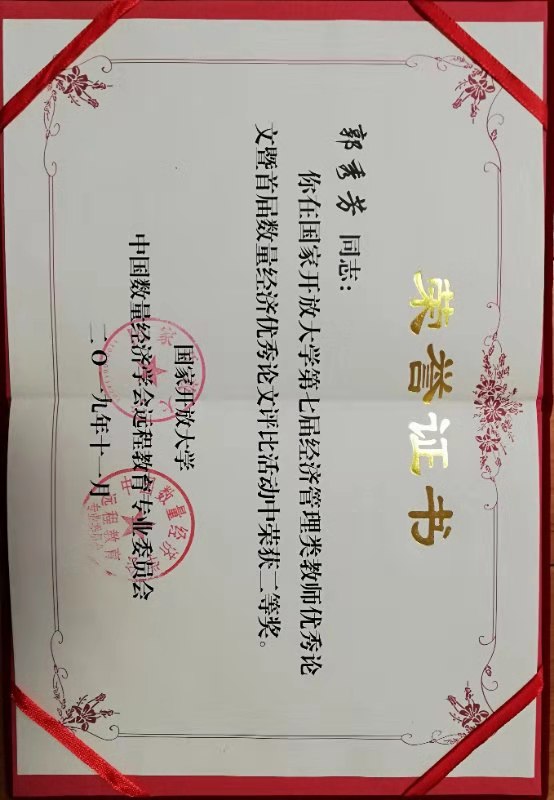 荣誉证书
郭秀芳 同志：
你在国家开放大学第七届经济管理类教师优秀论
文暨首届数量经济优秀论文评比活动中荣获二等奖。
国家开放大学
中国数量经济学会远程教育专业委员会
二〇一九年十一月
远程教育